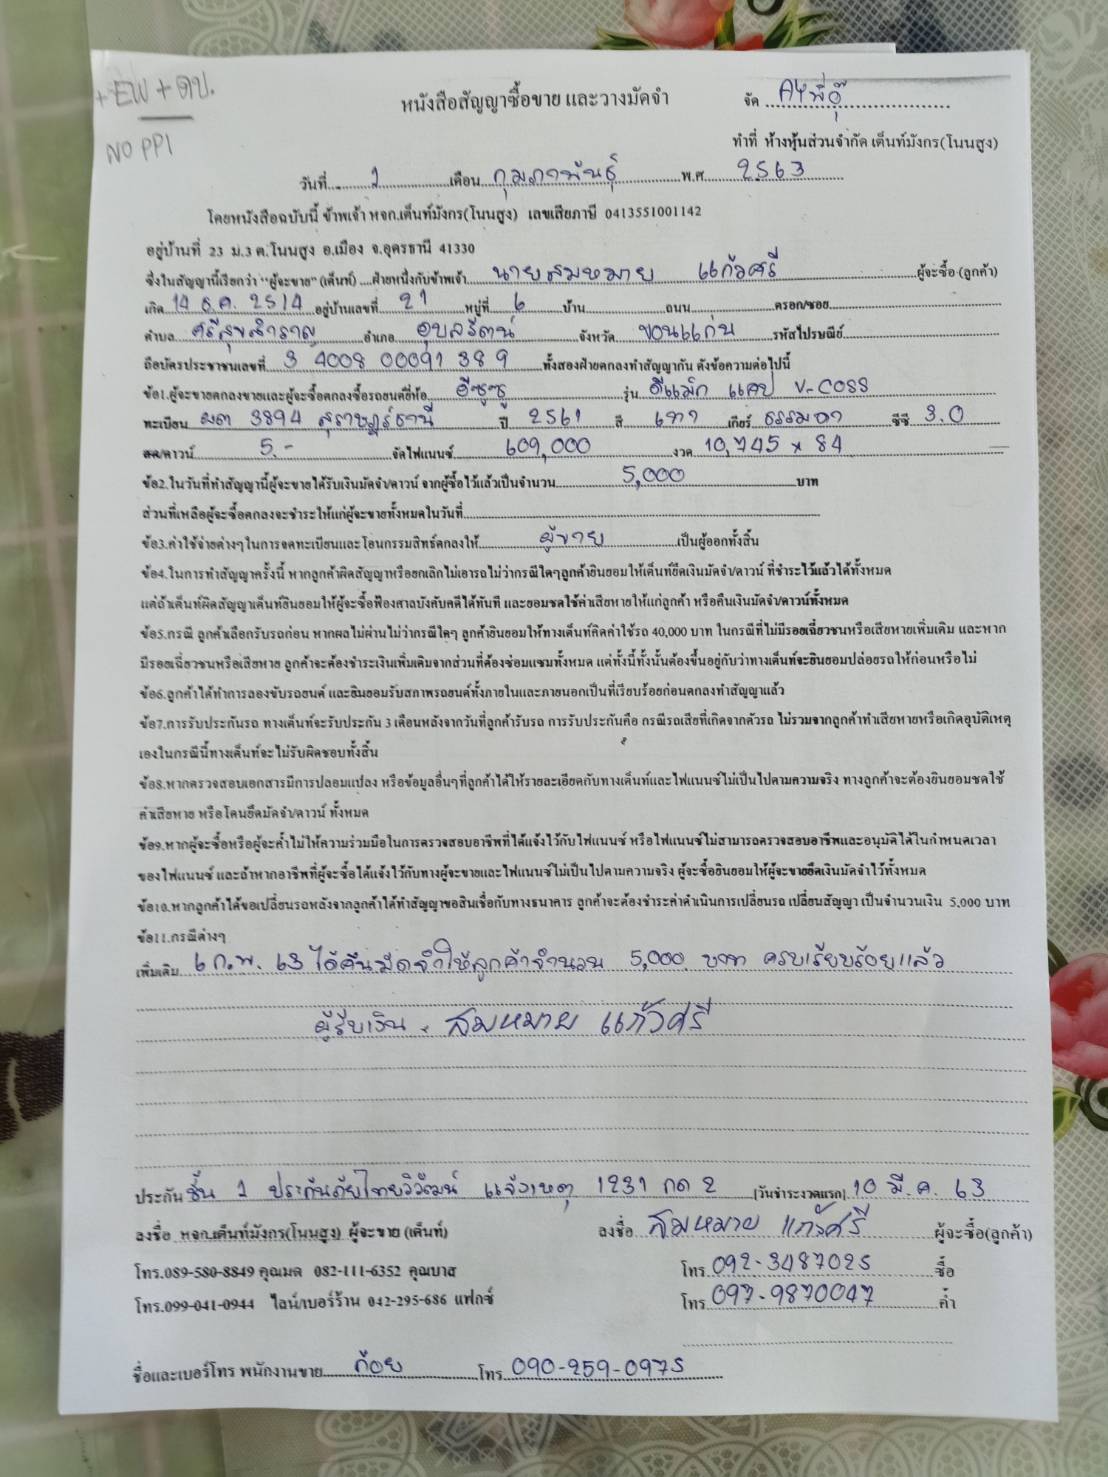 + EW + ดบ.
NO PPI
หนังสือสัญญาซื้อขาย และวางมัดจำ
จัด AYพี่อุ๊
ทำที่ ห้างหุ้นส่วนจำกัด เต็นท์มังกร(โนนสูง)
วันที่ 1 เดือน กุมภาพันธุ์ พ.ศ 2563
โดยหนังสือฉบับนี้ ข้าพเจ้า หจก.เต็นท์มังกร(โนนสูง) เลขเสียภาษี 0413551001142
อยู่บ้านที่ 23 ม.3 ต.โนนสูง อ.เมือง จ.อุดรธานี 41330
ซึ่งในสัญญานี้เรียกว่า "ผู้จะขาย" (เต็นท์) ....ฝ่ายหนึ่งกับข้าพเจ้า นายสมหมาย แก้วศรี ผู้จะซื้อ (ลูกค้า)
เกิด 14 ธ.ค. 2514 อยู่บ้านเลขที่ 21 หมู่ที่ 6 บ้าน ถนน ครอก/ซอย
ตำบล ศรีสุขสำราญ อำเภอ อุบลรัตน์ จังหวัด ขอนแก่น รหัสไปรษณีย์
ถือบัตรประชาชนเลขที่ 3 4008 00091 389 ทั้งสองฝ่ายตกลงทำสัญญากัน ดังข้อความต่อไปนี้
ข้อ1.ผู้จะขายตกลงขายและผู้จะซื้อตกลงซื้อรถยนต์ยี่ห้อ อีซูซุ รุ่น ดีแม็ก แคป V-COSS
ทะเบียน ผต 3894 สุราษฎร์ธานี ปี 2561 สี เทา เกียร์ ธรรมดา ซีซี 3.0
สด/ดาวน์ 5.- จัดไฟแนนซ์ 609,000 งวด 10,745 x 84
ข้อ2.ในวันที่ทำสัญญานี้ผู้จะขายได้รับเงินมัดจำ/ดาวน์ จากผู้ซื้อไว้แล้วเป็นจำนวน 5,000 บาท
ส่วนที่เหลือผู้จะซื้อตกลงจะชำระให้แก่ผู้จะขายทั้งหมดในวันที่
ข้อ3.ค่าใช้จ่ายต่างๆในการจดทะเบียนและโอนกรรมสิทธ์ตกลงให้ ผู้ขาย เป็นผู้ออกทั้งสิ้น
ข้อ4.ในการทำสัญญาครั้งนี้ หากลูกค้าผิดสัญญาหรือยกเลิกไม่เอารถไม่ว่ากรณีใดๆลูกค้ายินยอมให้เต็นท์ยึดเงินมัดจำ/ดาวน์ ที่ชำระไว้แล้วได้ทั้งหมด
แต่ถ้าเต็นท์ผิดสัญญาเต็นท์ยินยอมให้ผู้จะซื้อฟ้องศาลบังคับคดีได้ทันที และยอมชดใช้ค่าเสียหายให้แก่ลูกค้า หรือคืนเงินมัดจำ/ดาวน์ทั้งหมด
ข้อ5.กรณี ลูกค้าเลือกรับรถก่อน หากผลไม่ผ่านไม่ว่ากรณีใดๆ ลูกค้ายินยอมให้ทางเต็นท์คิดค่าใช้รถ 40,000 บาท ในกรณีที่ไม่มีรอยเฉี่ยวชนหรือเสียหายเพิ่มเติม และหาก
มีรอยเฉี่ยวชนหรือเสียหาย ลูกค้าจะต้องชำระเงินเพิ่มเติมจากส่วนที่ต้องซ่อมแซมทั้งหมด แต่ทั้งนี้ทั้งนั้นต้องขึ้นอยู่กับว่าทางเต็นท์จะยินยอมปล่อยรถให้ก่อนหรือไม่
ข้อ6.ลูกค้าได้ทำการลองขับรถยนต์ และยินยอมรับสภาพรถยนต์ทั้งภายในและภายนอกเป็นที่เรียบร้อยก่อนตกลงทำสัญญาแล้ว
ข้อ7.การรับประกันรถ ทางเต็นท์จะรับประกัน 3 เดือนหลังจากวันที่ลูกค้ารับรถ การรับประกันคือ กรณีรถเสียที่เกิดจากตัวรถ ไม่รวมจากลูกค้าทำเสียหายหรือเกิดอุบัติเหตุ
เองในกรณีนี้ทางเต็นท์จะไม่รับผิดชอบทั้งสิ้น
ข้อ8.หากตรวจสอบเอกสารมีการปลอมแปลง หรือข้อมูลอื่นๆที่ลูกค้าได้ให้รายละเอียดกับทางเต็นท์และไฟแนนซ์ไม่เป็นไปตามความจริง ทางลูกค้าจะต้องยินยอมชดใช้
ค่าเสียหาย หรือโดนยึดมัดจำ/ดาวน์ ทั้งหมด
ข้อ9.หากผู้จะซื้อหรือผู้จะค้ำไม่ให้ความร่วมมือในการตรวจสอบอาชีพที่ได้แจ้งไว้กับไฟแนนซ์ หรือไฟแนนซ์ไม่สามารถตรวจสอบอาชีพและอนุมัติได้ในกำหนดเวลา
ของไฟแนนซ์ และถ้าหากอาชีพที่ผู้จะซื้อได้แจ้งไว้กับทางผู้จะขายและไฟแนนซ์ไม่เป็นไปตามความจริง ผู้จะซื้อยินยอมให้ผู้จะขายยึดเงินมัดจำไว้ทั้งหมด
ข้อ10.หากลูกค้าได้ขอเปลี่ยนรถหลังจากลูกค้าได้ทำสัญญาขอสินเชื่อกับทางธนาคาร ลูกค้าจะต้องชำระค่าดำเนินการเปลี่ยนรถ เปลี่ยนสัญญา เป็นจำนวนเงิน 5,000 บาท
ข้อ11.กรณีต่างๆ
เพิ่มเติม 6 ก.พ. 63 ได้คืนมัดจำให้ลูกค้าจำนวน 5,000 บาท ครบเรียบร้อยแล้ว
ผู้รับเงิน . สมหมาย แก้วศรี
ประกัน ชั้น 1 ประกันภัยไทยวิวัฒน์ แจ้งเหตุ 1231 กด 2 [วันชำระงวดแรก] 10 มี.ค. 63
ลงชื่อ หจก.เต็นท์มังกร(โนนสูง) ผู้จะขาย (เต็นท์) ลงชื่อ สมหมาย แก้วศรี ผู้จะซื้อ(ลูกค้า)
โทร.089-580-8849 คุณมด 082-111-6352 คุณบาส โทร 092-3487025 ซื้อ
โทร.099-041-0944 ไลน์/เบอร์ร้าน 042-295-686 แฟกซ์ โทร 097-9870047 ค้ำ
ชื่อและเบอร์โทร พนักงานขาย ก้อย โทร 090-259-0975